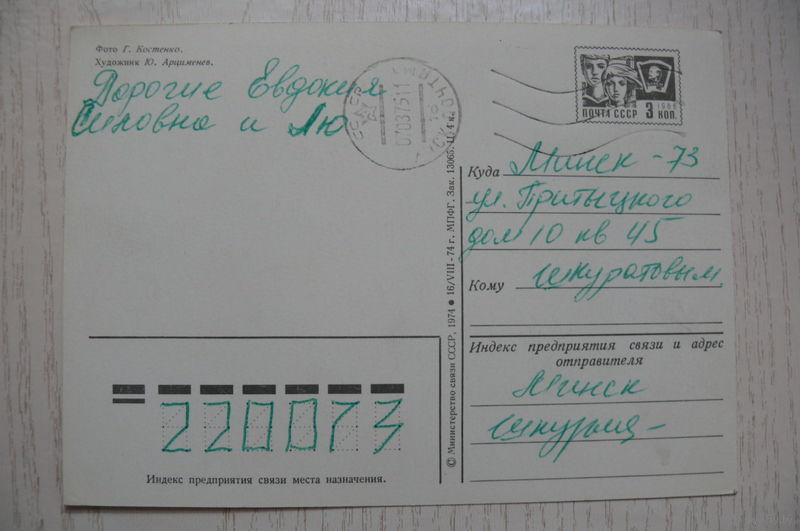 Фото Г. Костенко.
Художник Ю. Арцименев.
Дорогие Евдокия
Силовна и Лю
СССР
070375 11
МИНСК ПОЧТАМТ
18
1966
ПОЧТА СССР 3 КОП.
Куда Минск-73
ул. Притыцкого
дом 10 кв 45
Кому Шкуратовым
Индекс предприятия связи и адрес
отправителя
Минск
220073
Индекс предприятия связи места назначения.
© Министерство связи СССР, 1974 ● 16/VIII-74 г. МПФГ. Зак. 13065. 11/4 к.